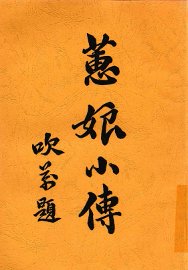 蕙娘小傳
吹萬題